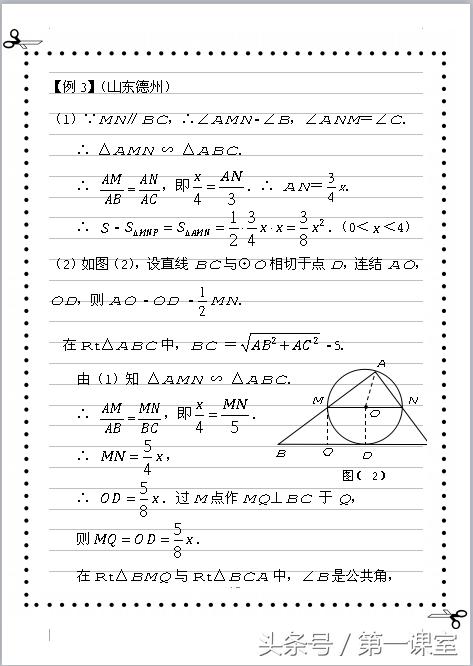 【例3】(山东德州)
(1) ∵MN∥BC, ∴∠AMN=∠B, ∠ANM=∠C.
∴ △AMN ∽ △ABC.
∴ AM/AB=AN/AC, 即x/4=AN/3. ∴ AN=3/4 x.
∴ S=S△MNP=S△AMN=1/2·3/4x·x=3/8x². (0<x<4)
(2) 如图(2), 设直线BC与⊙O相切于点D, 连结AO,
OD, 则AO=OD=1/2MN.
在Rt△ABC中, BC=√(AB²+AC²)=5.
由 (1) 知 △AMN ∽ △ABC.
∴ AM/AB=MN/BC, 即x/4=MN/5.
∴ MN=5/4x,
∴ OD=5/8x. 过M点作MQ⊥BC 于Q,
则MQ=OD=5/8x.
在Rt△BMQ与Rt△BCA中, ∠B是公共角,
A
M
O
N
B
Q
D
图( 2)
头条号 / 第一课室